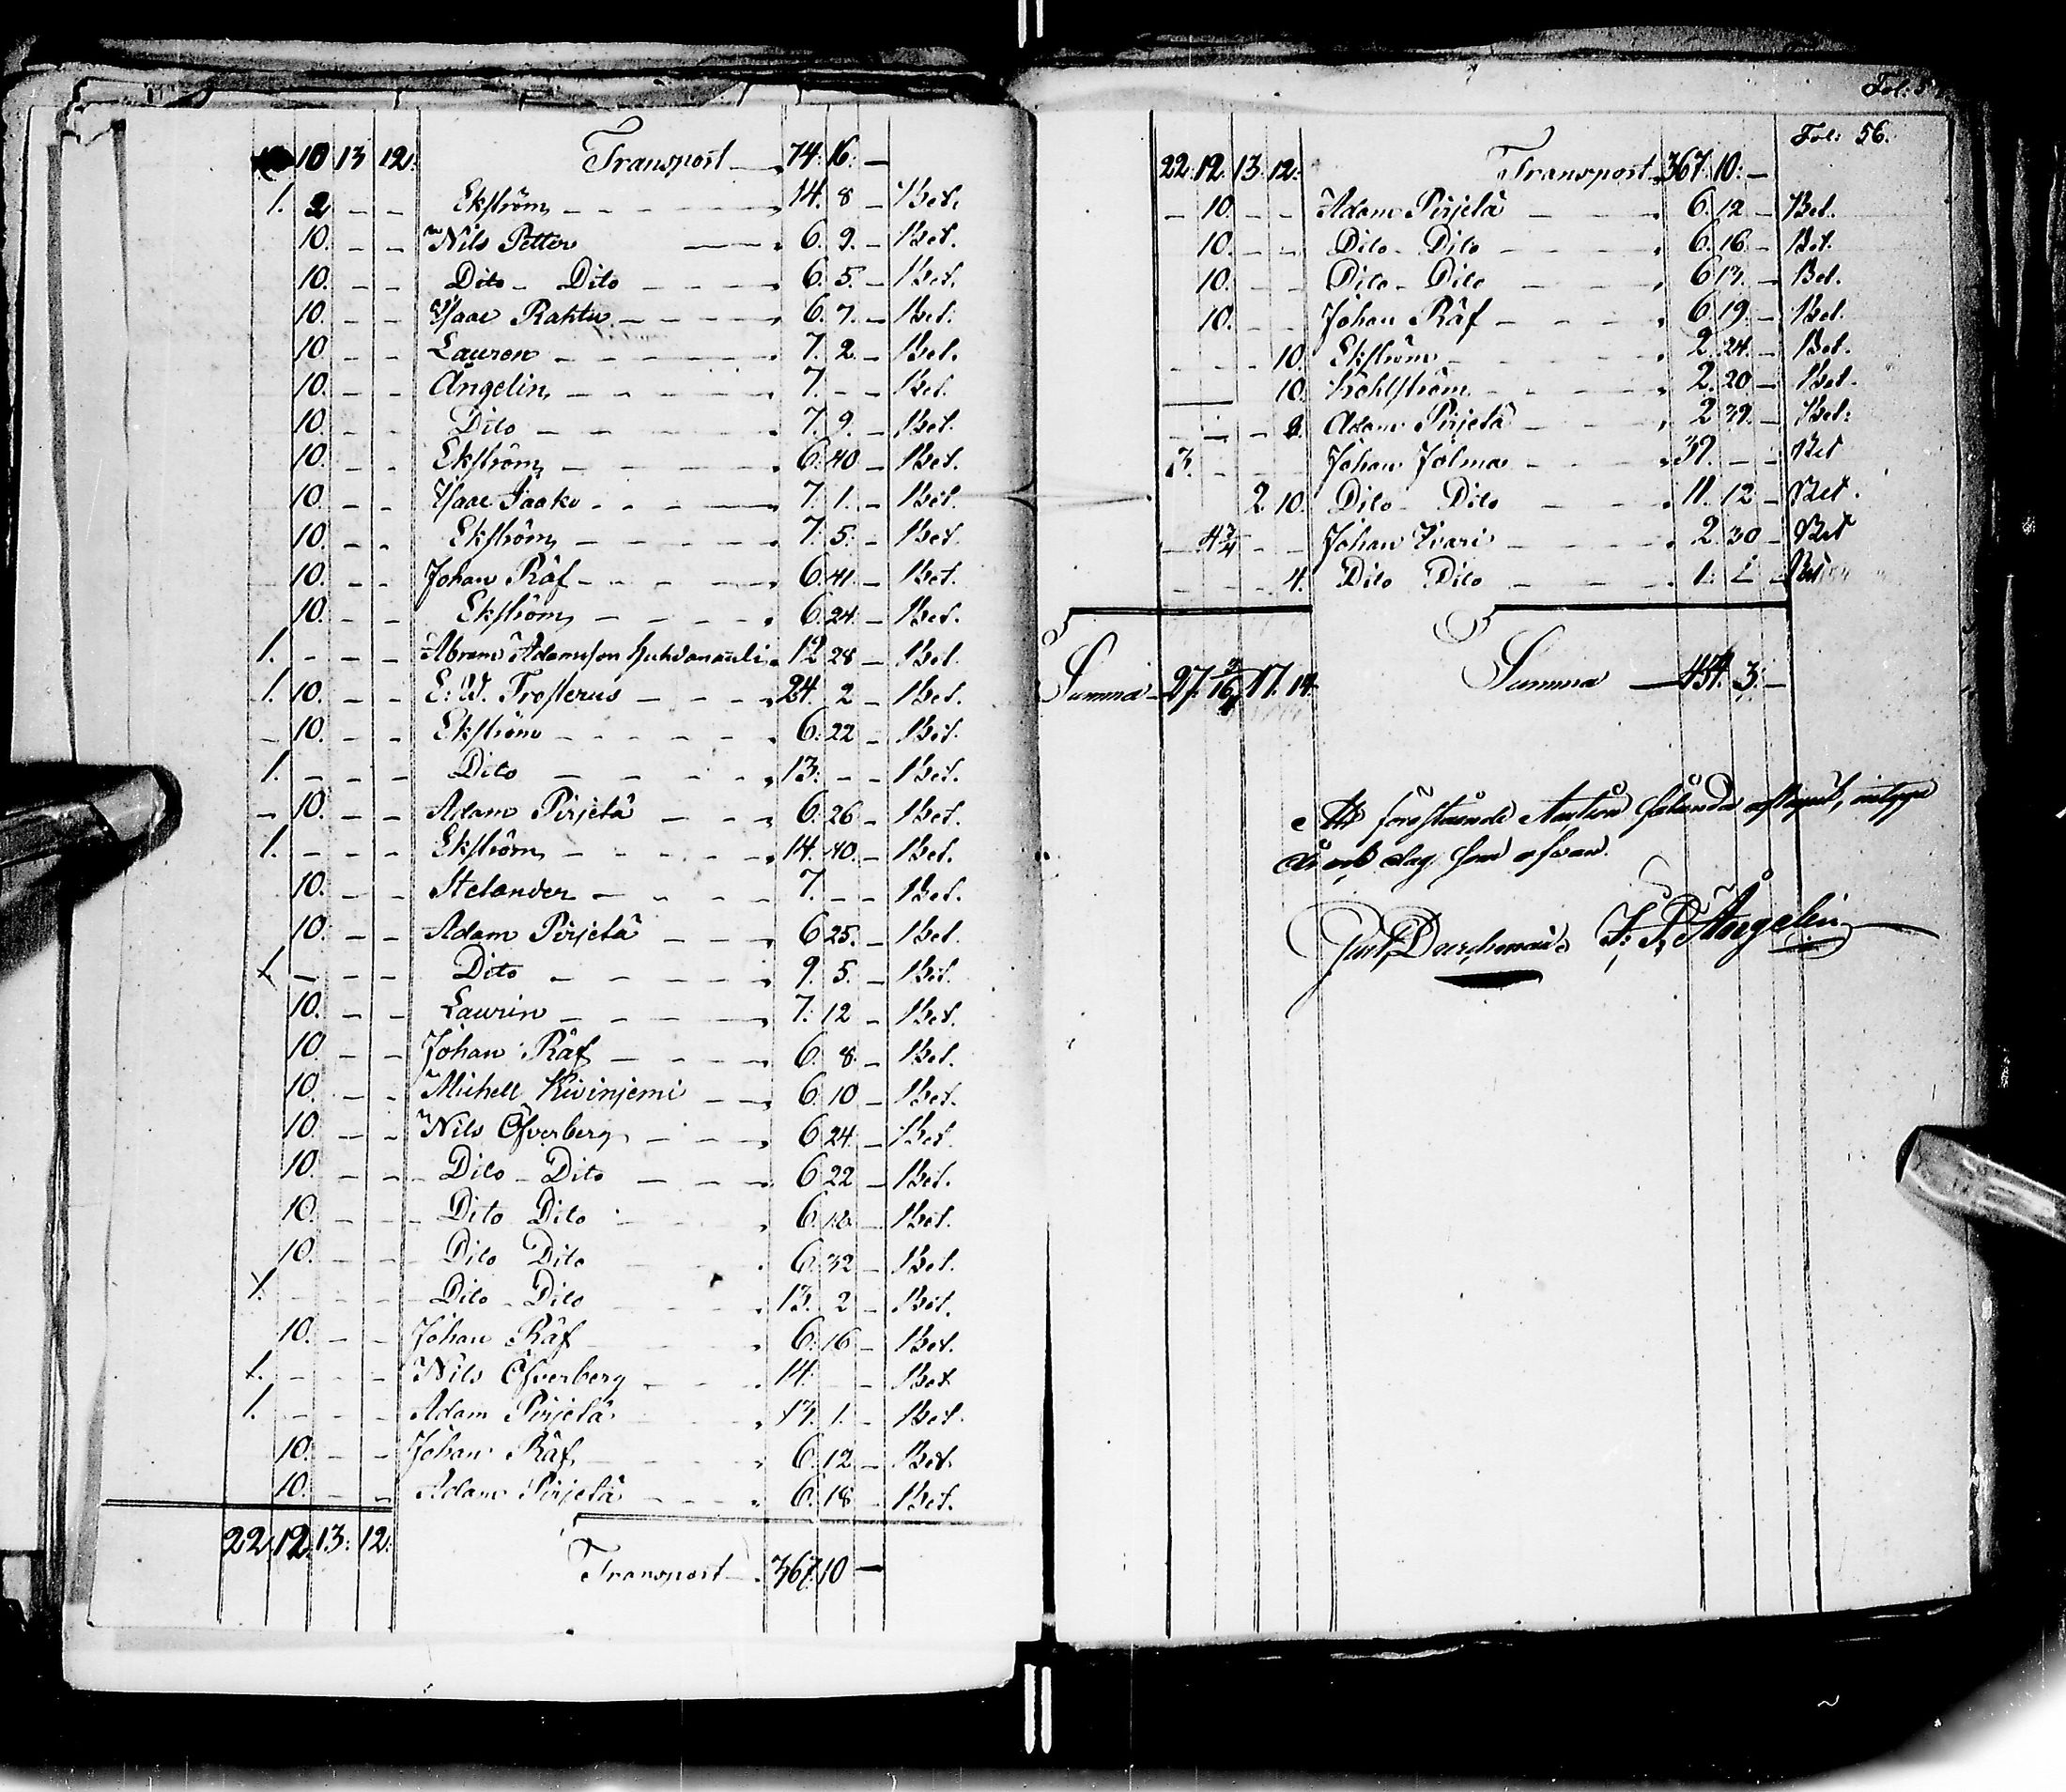 10 13 12. Transport 74. 16. —
1. 2 — — Ekström — — 14. 8 — Bet.
10. — — Nils Petter — 6. 9. — Bet.
10. — — Dito — Dito — — 6. 5. — Bet.
10. — — Isaac Rahtu — — 6. 7. — Bet.
10 — — Lauren — — 7. 2. — Bet.
10. — — Ångelin — — 7. — — Bet.
10. — — Dito — — 7. 9. — Bet.
10. — — Ekström — — 6. 40 — Bet.
10. — — Isaac Jaako — — 7. 1. — Bet.
10. — — Ekström — — 7. 5. — Bet.
10. — — Johan Räf — — 6. 41. — Bet.
10. — — Ekström — — 6. 24. — Bet.
1. — — — Abram Adamsson — 12 28 — Bet.
1. 10. — — E. W. Frosterus — — 24. 2 — Bet.
— 10. — — Ekström — — 6. 22 — Bet.
1. — — — Dito — — 13. — — Bet.
— 10. — — Adam Pirjetä — — 6. 26 — Bet.
1. — — — Ekström — — 14. 40. — Bet.
10. — — Stelander — — 7. — — Bet.
10. — — Adam Pirjetä — — 6 25. — Bet.
1. — — — Dito — — 9. 5. — Bet.
10. — — Laurin — — 7. 12 — Bet.
10 — — Johan Räf — — 6. 8. — Bet.
10. — — Michell Kivinjemi — — 6. 10 — Bet.
10. — — Nils Öfverberg — — 6 24. — Bet.
10. — — Dito — Dito — — 6 22 — Bet.
10. — — Dito Dito — — 6. — Bet.
10. — — Dito Dito 6. 32 — Bet.
1. — — — Dito — Dito 13. 2 — Bet.
10. — — Johan Räf 6. 16 — Bet.
1. — — — Nils Öfverberg — — 14. — Bet
1. — — — Adam Pirjetä 13. 1. — Bet.
10. — — Johan Räf 6. 12 — Bet.
10. — — Adam Pirjetä — — 6. 18 — Bet.
22. 12. 13. 12. Transport 367. 10 —
Fol. 56.
22. 12. 13. 12. Transport 367. 10. —
— 10. — — Adam Pirjetä — — 6. 12 — Bet.
10. — — Dito — Dito — — 6. 16. — Bet.
10. — — Dito — Dito — — 6 13. — Bet.
10. — — Johan Räf — — 6. 19. — Bet.
— — — 10. Ekström — — 2. 24. — Bet.
10. Kohlström — — 2. 20 — Bet.
— — — Adam Pirjetä — 2 39. — Bet.
3. — — — Johan Jolma — — 39. — — Bet
2 10. Dito — Dito — — 11. 12 — Bet.
— 4 3/4 — — Johan Ivari — — 2. 30 — Bet
— — — 4. Dito Dito — — 1. — Bet
Summa 27. 16 3/4 17. 14 Summa — 454. 3. —
Att förestående Auction sålunda aflupit, intyga
År och dag som ofvan.
Gust. F. P. Ångelin